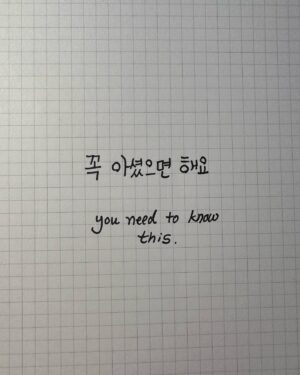 꼭 아셨으면 해요
you need to know
this.